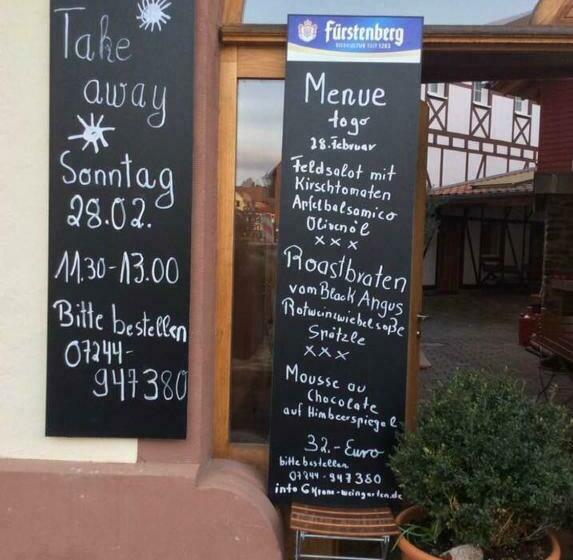 Take
away
Sonntag
28.02.
11.30-13.00
Bitte bestellen
07244-
947380
Fürstenberg
BIERKULTUR SEIT 1283
Menue
togo
28.Februar
Feldsalat mit
Kirschtomaten
Apfelbalsamico
Olivenöl
x x x
Roastbraten
vom Black Angus
Rotweinzwiebelsoße
Spätzle
x x x
Mousse au
Chocolate
auf Himbeerspiegel
32.- Euro
bitte bestellen
07244-947380
info@krone-weingarten.de